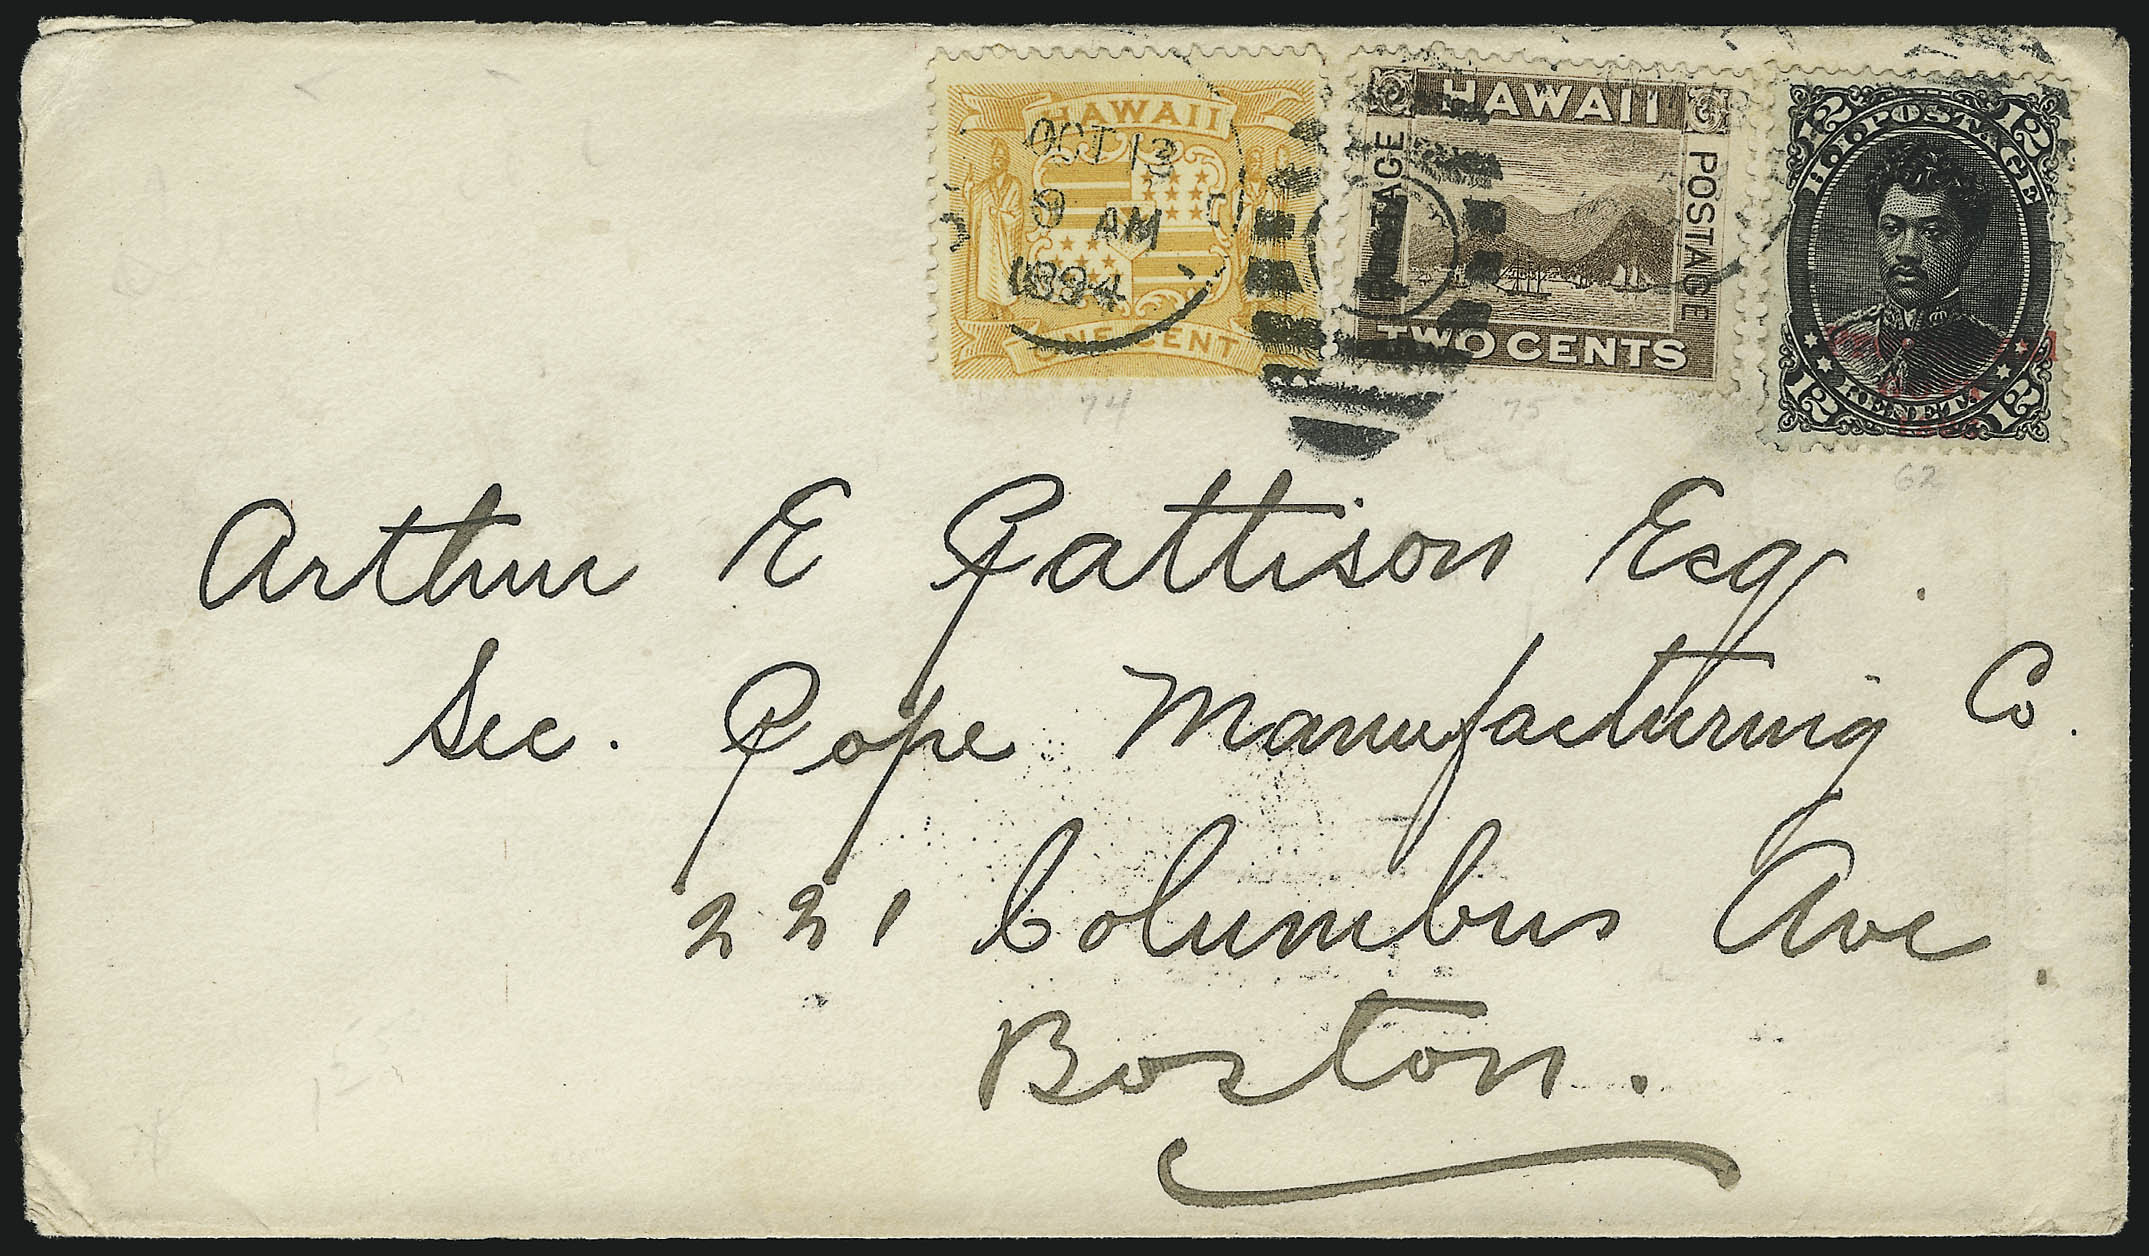 HAWAII
OCT 13
9 AM
1894
ONE CENT
HAWAII
POSTAGE
POSTAGE
1
TWO CENTS
12 POSTAGE 12
12 12
74
75
62
Arthur E Pattison Esq.
Sec. Pope Manufacturing Co.
221 Columbus Ave.
Boston.